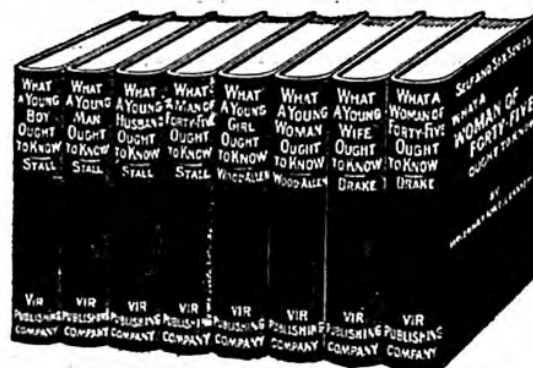 WHAT
A YOUNG
BOY
OUGHT
TO KNOW
STALL
VIR
PUBLISHING
COMPANY
WHAT
A YOUNG
MAN
OUGHT
TO KNOW
STALL
VIR
PUBLISHING
COMPANY
WHAT
A YOUNG
HUSBAND
OUGHT
TO KNOW
STALL
VIR
PUBLISHING
COMPANY
WHAT
A MAN OF
FORTY-FIVE
OUGHT
TO KNOW
STALL
VIR
PUBLISHING
COMPANY
WHAT
A YOUNG
GIRL
OUGHT
TO KNOW
WOOD-ALLEN
VIR
PUBLISHING
COMPANY
WHAT
A YOUNG
WOMAN
OUGHT
TO KNOW
WOOD-ALLEN
VIR
PUBLISHING
COMPANY
WHAT
A YOUNG
WIFE
OUGHT
TO KNOW
DRAKE
VIR
PUBLISHING
COMPANY
WHAT
A WOMAN OF
FORTY-FIVE
OUGHT
TO KNOW
DRAKE
VIR
PUBLISHING
COMPANY
SELF AND SEX SERIES
WHAT A
WOMAN OF
FORTY-FIVE
OUGHT TO KNOW
BY